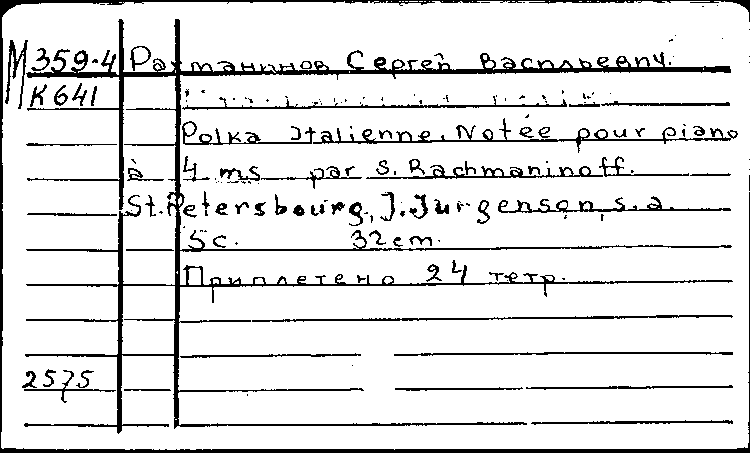 М 359-4 Рахманинов, Сергей Васильевич.
К 641
Polka Italienne. Notée pour piano
à 4 ms par S. Rachmaninoff.
St. Petersbourg, J. Jurgenson, s. a.
5 с. 32 cm.
Приплетено 24 тетр.
2575